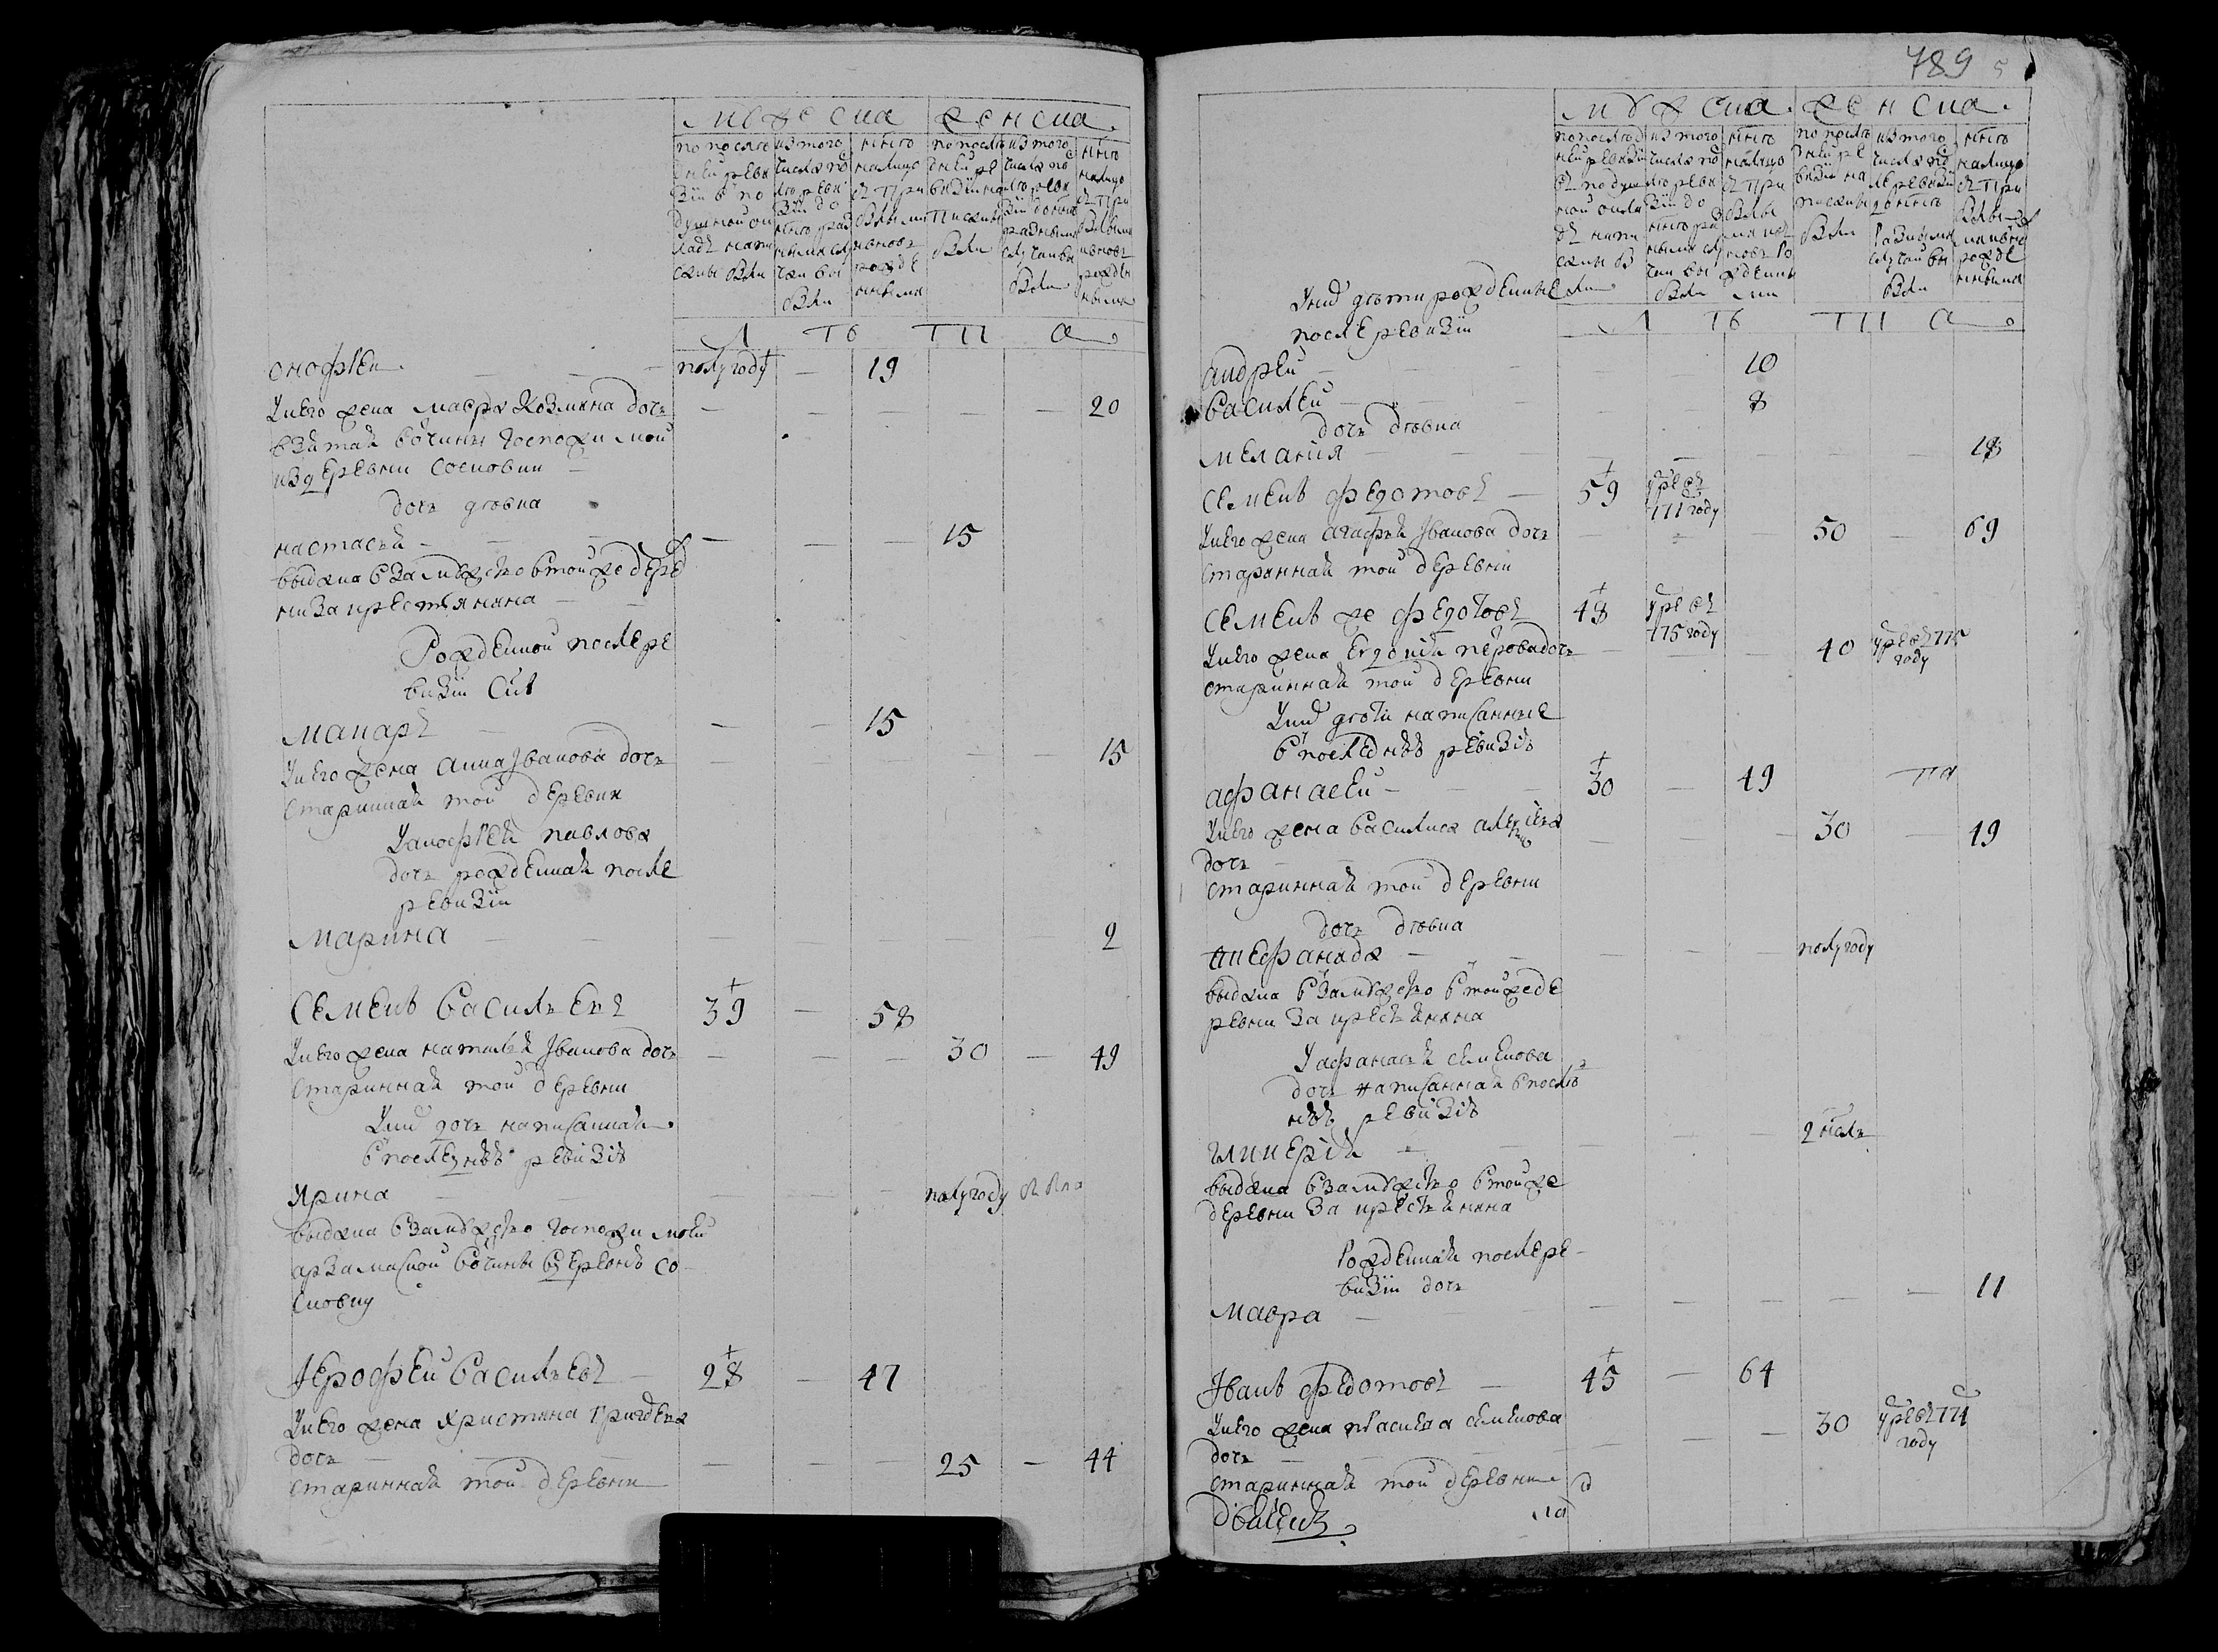 мужеска женска
по последней ревизии в подушной окладъ написаны были
изъ того числа после ревизии до ныне разными случаи выбыли
ныне налицо с прибылыми и вновь рожденными
по последней ревизии написаны были
изъ того числа после ревизии до ныне разными случаи выбыли
ныне налицо с прибылыми и вновь рожденными
Л Т Ъ Т П а
онофрей — полугоду — 19
у него жена мавра козмина дочь — 20
взятая вотчины госпожи моей
из деревни сосновки
дочь девка
настасья — 15
выдана в замужество в той же дерев
ни за крестьянина
Рожденной после ре
визии сынъ
макаръ — 15
у него жена анна Иванова дочь — 15
старинная той деревни
У анофрея павлова
дочь рожденная после
ревизии
марина — 2
Семенъ васильевъ 39 — 58
у него жена наталья Иванова дочь — 30 — 49
старинная той деревни
У них дочь написанная
в последней ревизие
Ярина — полугоду
выдана в замужество госпожи моей
арзамаской вотчины в деревню со
сновку
Ерофей васильевъ 28 — 47
У него жена христина григорьева
дочь — 25 — 44
старинная той деревни
789
мужеска женска
по последней ревизии в подушной окладъ написаны были
изъ того числа после ревизии до ныне разными случаи выбыли
ныне налицо с прибылыми и вновь рожденными
по последней ревизии написаны были
изъ того числа после ревизии до ныне разными случаи выбыли
ныне налицо с прибылыми и вновь рожденными
У них дети рожденные
после ревизии
Л Т Ъ Т П а
андрей — 10
василей — 8
дочь девка
мелания — 18
семенъ федотовъ — 59 умре въ 771 году
у него жена агафья Иванова дочь — 50 — 69
старинная той деревни
семенъ же федотовъ 48 умре въ 775 году
у него жена евдокия петрова дочь — 40 умре въ 775 году
старинная той деревни
У них дети написанные
в последней ревизие
афанасей — 30 — 49
у него жена василиса алексеева — 30 — 49
дочь
старинная той деревни
дочь девка
степанида — полугоду
выдана в замужество в той же де
ревни за крестьянина
У афанасья семенова
дочь написанная в послед
ней ревизие
гликерия — 2 недель
выдана в замужество в той же
деревни за крестьянина
Рожденная после ре
визии дочь
мавра — 11
Иванъ федотовъ — 45 — 64
у него жена прасковья семенова — 30 умре въ 774 году
дочь
старинная той деревни